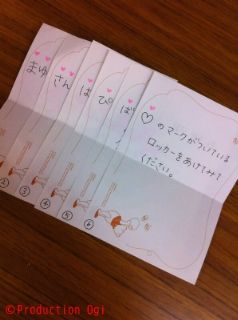 まゆ
さん
は
ぴ
ば
♡のマークがついている
ロッカーをあけてみて
ください。
②
③
④
⑤
⑥
©Production Ogi